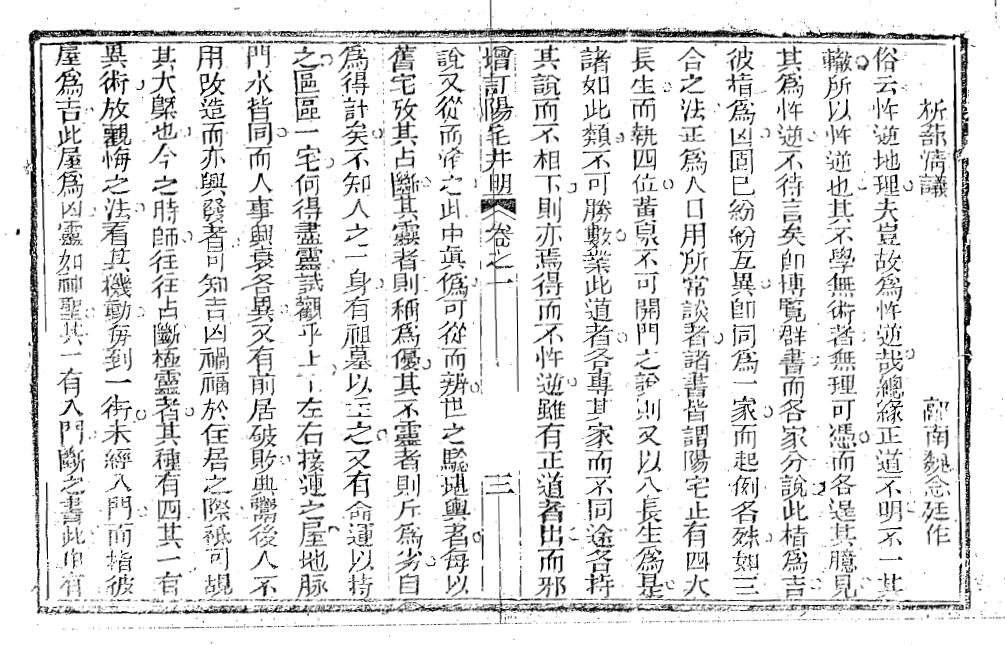 析疑清議
鄙南魏念廷作
俗云忤逆地理夫豈故為忤逆哉總緣正道不明不一其
轍所以忤逆也其不學無術者無理可憑而各逞其臆見
其為忤逆不待言矣卽博覧群書而各家分說此指為吉
彼指為凶固已紛紛互異卽同為一家而起例各殊如三
合之法正為人日用所常談者諸書皆謂陽宅止有四大
長生而執四位黃泉不可開門之說則又以八長生為是
諸如此類不可勝數業此道者各專其家而不同途各持
其說而不相下則亦焉得而不忤逆雖有正道者出而邪
增訂陽宅井明 卷之一 三
說又從而淆之此中真偽可從而辨世之騐堪輿者每以
舊宅攷其占斷其靈者則稱為優其不靈者則斥為劣自
為得計矣不知人之一身有祖墓以主之又有命運以持
之區區一宅何得盡靈試觀乎上下左右接連之屋地脉
門水皆同而人事興衰各異又有前居破敗典鬻後人不
用改造而亦興發者可知吉凶禍福於住居之際祗可覘
其大槩也今之時師往往占斷極靈者其種有四其一有
異術放觀悔之法看其機動每到一街未經入門而指彼
屋為吉此屋為凶靈如神聖其一有入門斷之書此但有